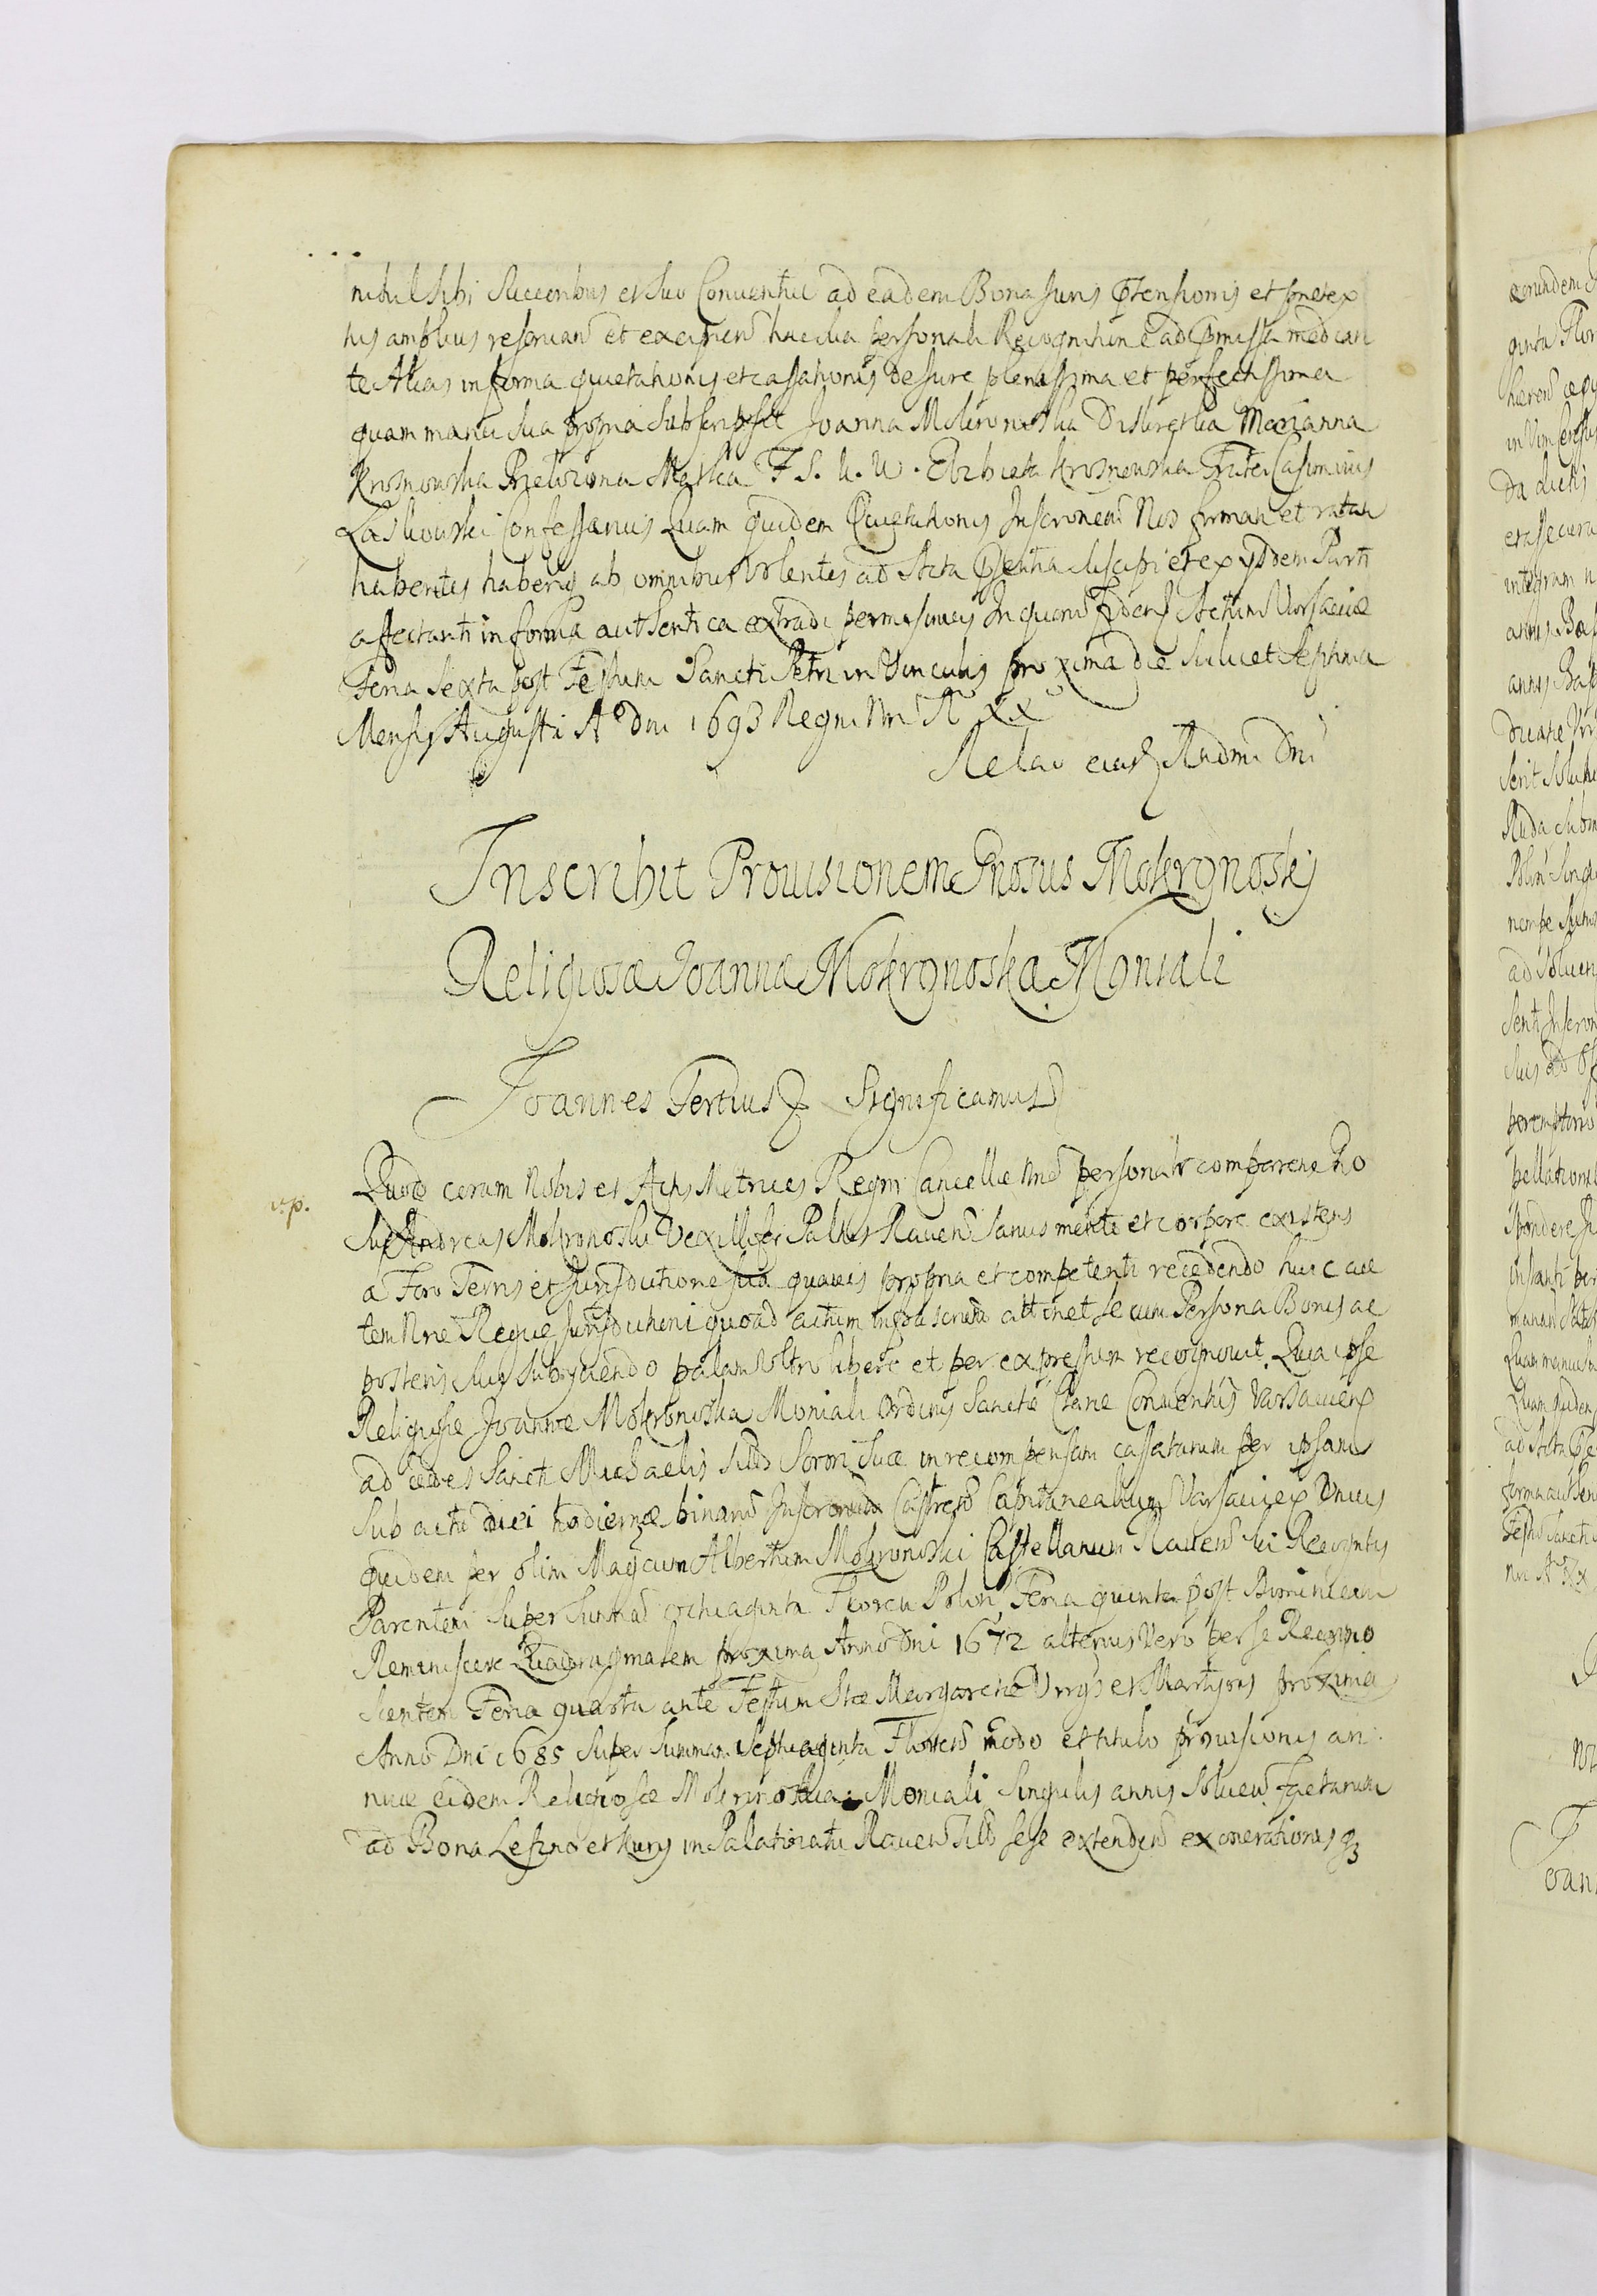 nihil sibi Succoribus et suo Conventui ad eadem Bona Juris Ptensionis et sonetex
tus amplius reservan̄ et excipien̄ hac sua personali Recognitine ad Pmissa median
te Alias in forma quietationis et cassationis de Jure plenissima et perfectissima
quam manu sua propria subscripsit Joanna Mokronoska Diskretka Marianna
Krosnowska Przełozona Matka F S. K. W. Elzbieta Krosnowska Frater Casimirus
Laskowski Confessarius Quam quidem Quietationis Inscronem̄ Nos firmam et ratam
habentes haberiq ab omnibus Volentes ad Acta Psentia suscipi et ex ijsdem Parti
affectanti in forma authentica extradi permisimus In quorū fidem Actum Varsaviæ
Feria Sexta post Festum Sancti Petri in Vinculis proxima die scilicet Septima
Mensis Augusti A Dni 1693 Regni Nri A XX
Relao eiusd Rndmi Dni
Inscribit Provisionem Gnosus Mokronoskj
Religiosæ Joannæ Mokronoskæ Moniali
Joannes Tertius Significamus
v.p.
Quod coram Nobis et Actis Metrices Regni Cancellæ Nræ personalr comparens Gno
sus Andreas Mokronoski Vexillifer Palnus Raven̄ sanus mente et corpore existens
a Foro Terris et Jurisdictione sua quavis propria et competenti recedendo huic au
tem Nræ Regiæ Jurisdictioni quoad actum infrascriptū attinet se cum Persona Bonis ac
posteris suis subijciendo palam Vltro libere et per expressum recognovit. Quia ipse
Religiosæ Joannæ Mokronoska Moniali Ordinis Sanctæ Claræ Conventus Varsaviens
ad ædes Sancti Michaelis Sorori suæ in recompensam cassatarum per ipsam
sub actu diei hodiernæ binarū Inscronum Castren̄ Capitanealium Varsavien Vnius
quidem per olim Magcum Albertum Mokronoski Castellanum Raven̄ sui Recogntis
Parentem super summā octuaginta Floren Polon Feria quinta post Dominicam
Reminiscere Quadragmalem proxima Anno Dni 1672 alterius Vero per se Recogno
scentem Feria quarta ante Festum Stæ Margarethæ Virgis et Martyris proxima
Anno Dni 1685 super summam Septuaginta Floren̄ modo et titulo provisionis an
nuæ eidem Religiosæ Mokronoska Moniali singulis annis solven̄ factarum
ad Bona et in Palatinatu Raven̄ sese extenden̄ exonerationisq